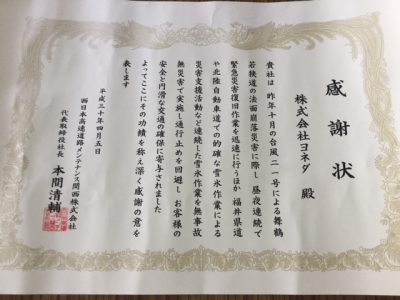 感謝状
株式会社ヨネダ 殿
貴社は昨年十月の台風二一号による舞鶴
若狭道の法面崩落災害に際し昼夜連続で
緊急災害復旧作業を迅速に行うほか福井県道
や北陸自動車道での的確な雪氷作業による
災害支援活動など連続した雪氷作業を無事故
無災害で実施し通行止めを回避しお客様の
安全と円滑な交通の確保に寄与されました
よってここにその功績を称え深く感謝の意を
表します
平成三十年四月五日
西日本高速道路メンテナンス関西株式会社
代表取締役社長 本間清輔